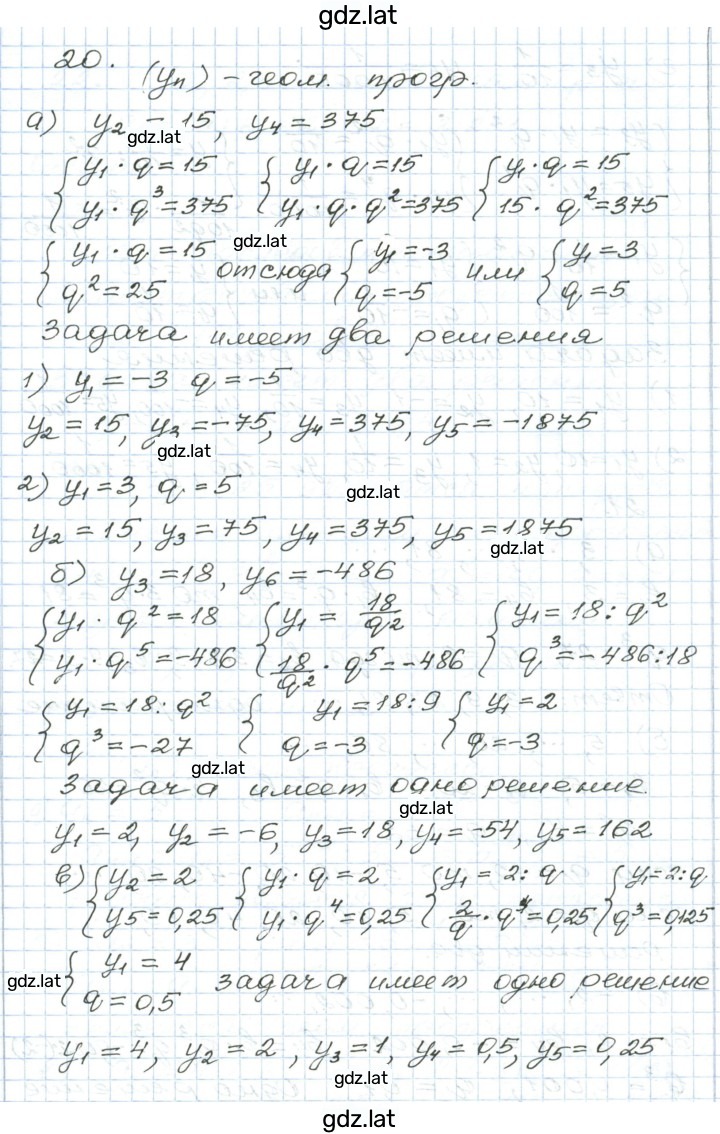 gdz.lat
20.
(yn) – геом. прогр.
а) y₂ – 15, y₄ = 375
gdz.lat
{ y₁ · q = 15 { y₁ · q = 15 { y₁ · q = 15
{ y₁ · q³ = 375 { y₁ · q · q² = 375 { 15 · q² = 375
gdz.lat
{ y₁ · q = 15 отсюда { y₁ = -3 или { y₁ = 3
{ q² = 25 { q = -5 { q = 5
Задача имеет два решения
1) y₁ = -3 q = -5
y₂ = 15, y₃ = -75, y₄ = 375, y₅ = -1875
gdz.lat
2) y₁ = 3, q = 5
gdz.lat
y₂ = 15, y₃ = 75, y₄ = 375, y₅ = 1875
gdz.lat
б) y₃ = 18, y₆ = -486
{ y₁ · q² = 18 { y₁ = 18/q² { y₁ = 18 : q²
{ y₁ · q⁵ = -486 { 18/q² · q⁵ = -486 { q³ = -486 : 18
{ y₁ = 18 : q² { y₁ = 18 : 9 { y₁ = 2
{ q³ = -27 { q = -3 { q = -3
gdz.lat
Задача имеет одно решение.
gdz.lat
y₁ = 2, y₂ = -6, y₃ = 18, y₄ = -54, y₅ = 162
в) { y₂ = 2 { y₁ · q = 2 { y₁ = 2 : q { y₁ = 2 : q
{ y5 = 0,25 { y₁ · q⁴ = 0,25 { 2/q · q⁴ = 0,25 { q³ = 0,125
gdz.lat
{ y₁ = 4 задача имеет одно решение
{ q = 0,5
y₁ = 4, y₂ = 2, y₃ = 1, y₄ = 0,5, y₅ = 0,25
gdz.lat
gdz.lat